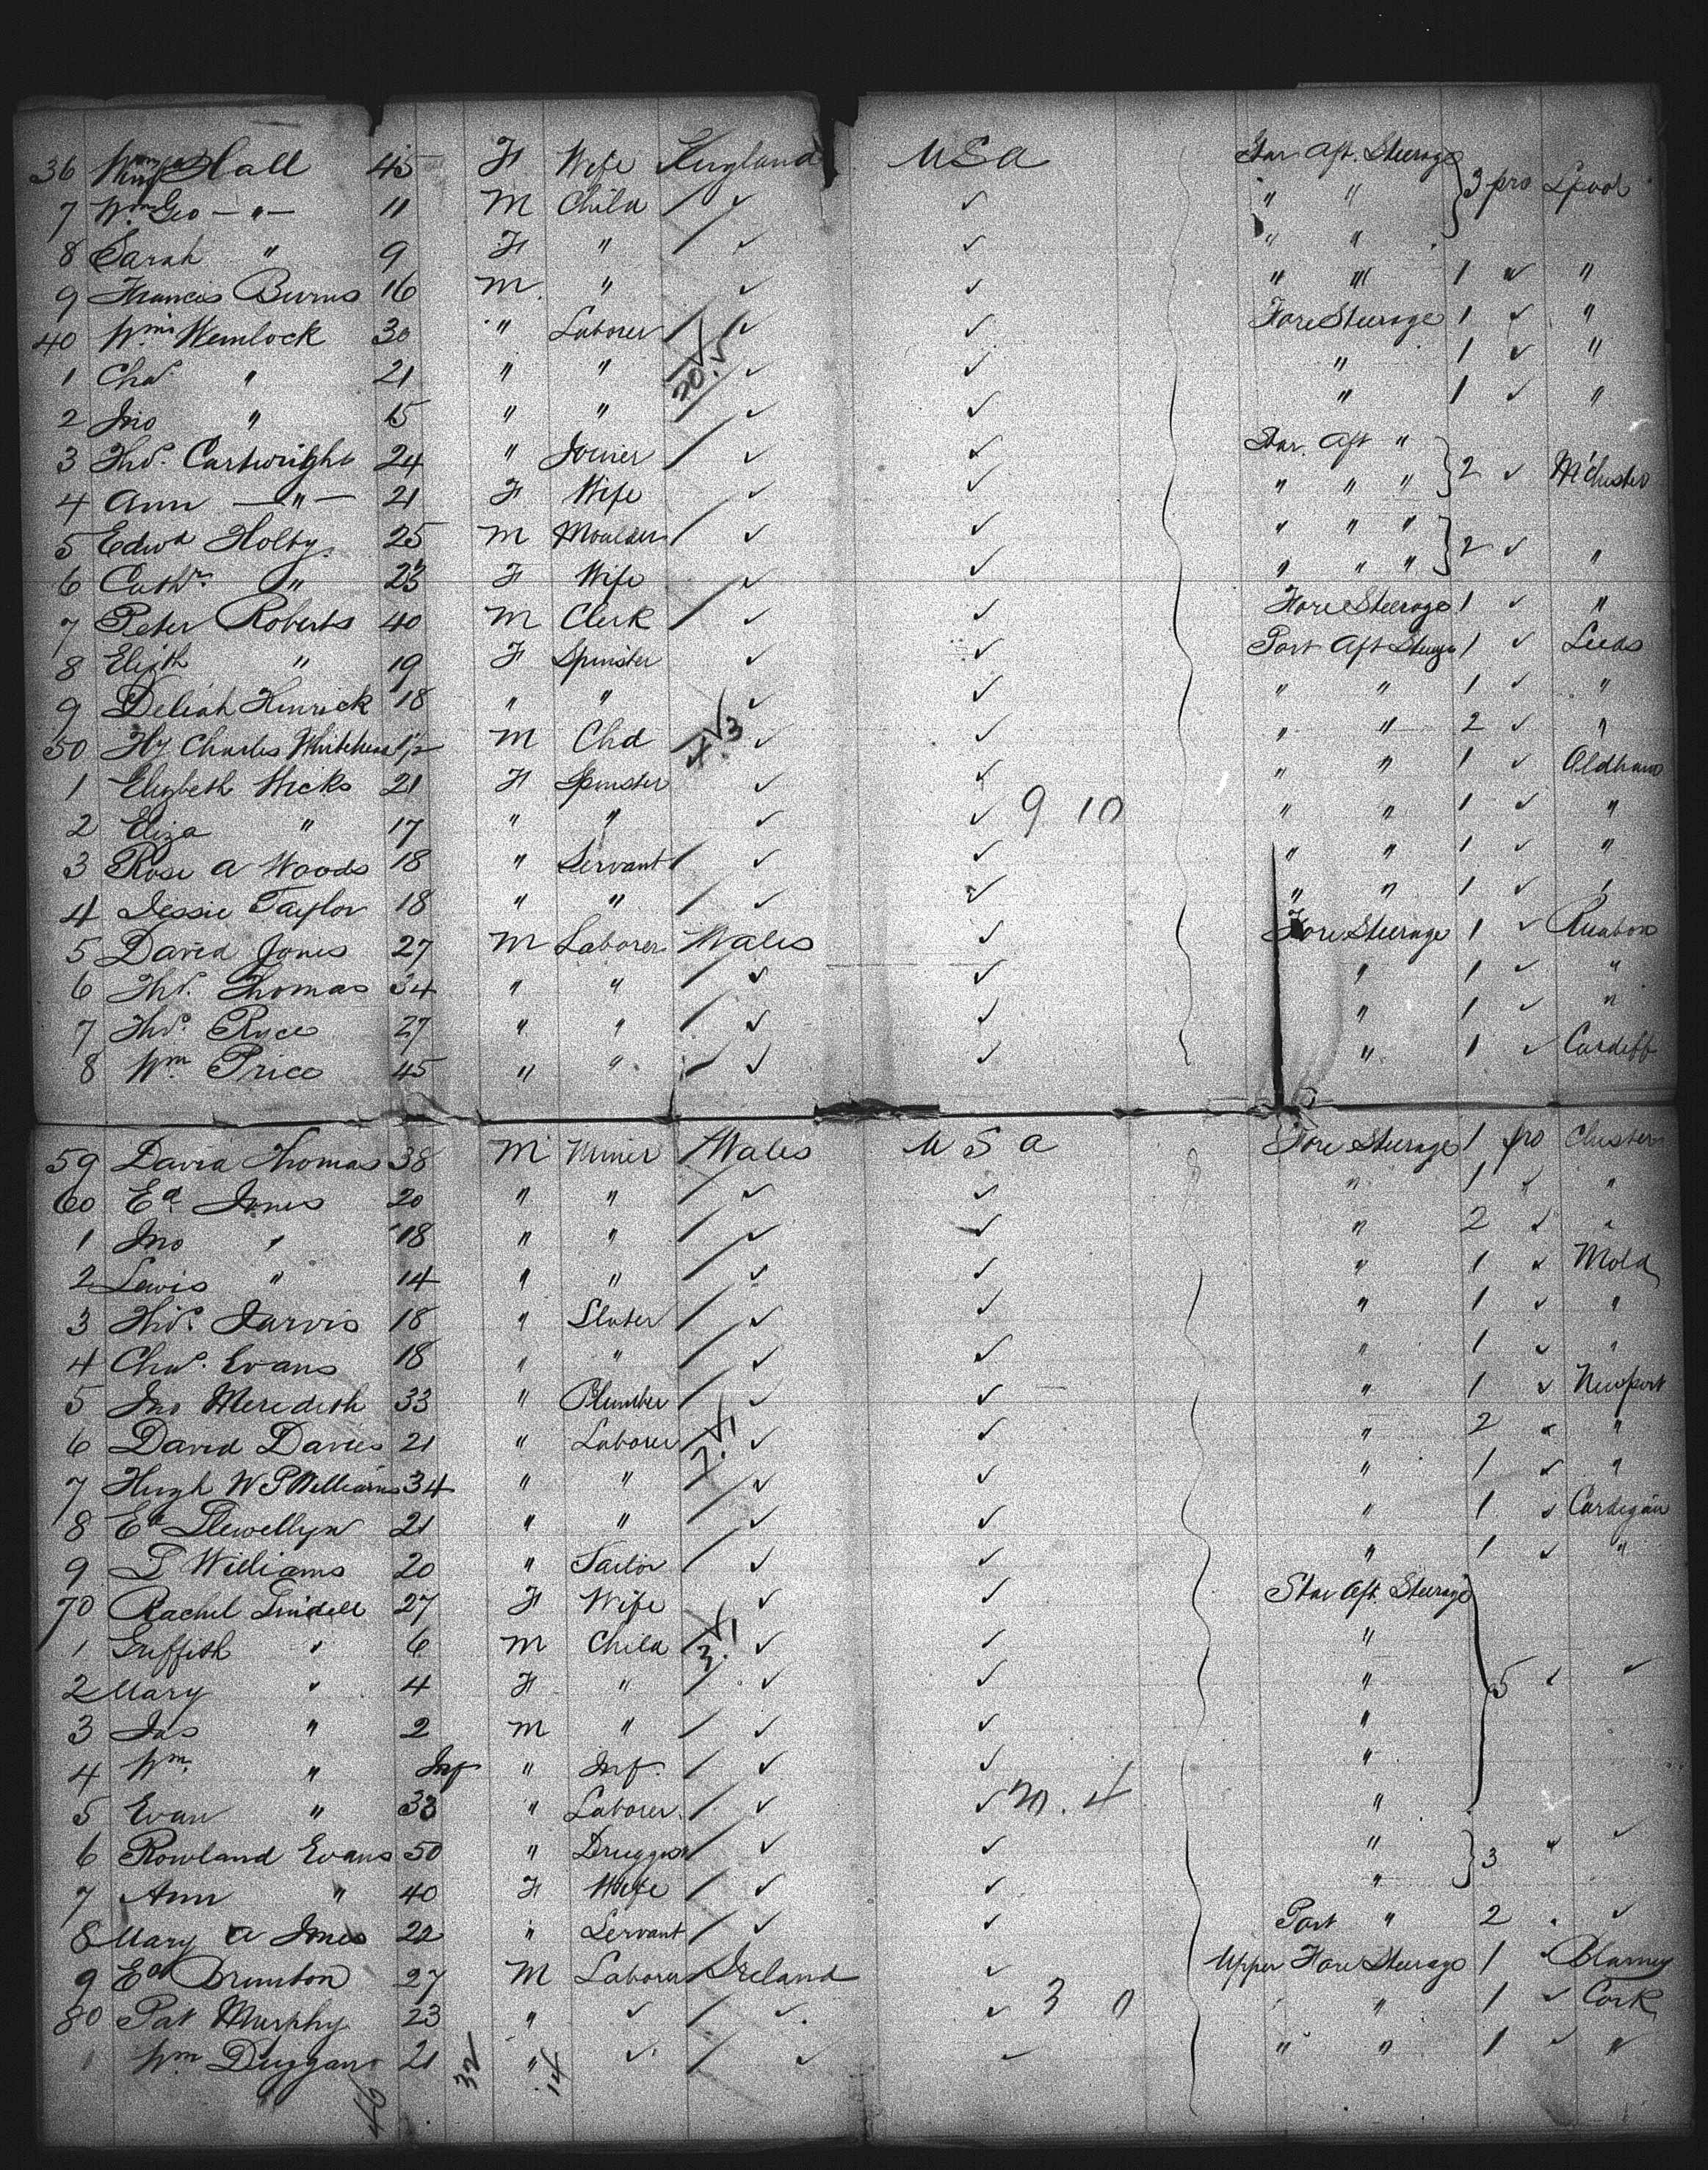 36 Hall 45 F Wife England USA Star Aft. Steerage 3 pro Lpool
7 Wm Geo — " — 11 M Child / ✓ ✓ " "
8 Sarah " 9 F " / ✓ ✓ " "
9 Francis Burns 16 M. " ✓ ✓ " " 1 " "
40 Wm Wemlock 30 " Laborer / ✓ ✓ Fore Steerage 1 ✓ "
1 Chas " 21 " " ✓ ✓ " 1 ✓ "
20.
2 Jno " 15 " " ✓ ✓ " 1 ✓ "
3 Thos. Cartwright 24 " Joiner / ✓ ✓ Star. Aft " 2 ✓ M'Chester
4 Ann — " — 21 F Wife ✓ ✓ " " "
5 Edwd Holby 25 M Moulder / ✓ ✓ " " " 2 ✓ "
6 Cathn " 23 F Wife ✓ ✓ " " "
7 Peter Roberts 40 M Clerk / ✓ ✓ Fore Steerage 1 ✓ "
8 Elizth " 19 F Spinster ✓ ✓ Port Aft Steerge 1 ✓ Leeds
9 Deliah Hinrick 18 " " ✓ ✓ " " 1 ✓ "
50 Hy Charles Whitehead 1/2 M Chd ✓ ✓ " " 2 ✓ "
4.3
1 Elizbeth Wicks 21 F Spinster ✓ ✓ " " 1 ✓ Oldham
2 Eliza " 17 " " ✓ ✓ 9 10 " " 1 ✓ "
3 Rose A Woods 18 " Servant / ✓ ✓ " " 1 ✓ "
4 Jessie Taylor 18 " " / ✓ ✓ " " 1 ✓ "
5 David Jones 27 M Laborer Wales ✓ Fore Steerage 1 ✓ Ruabon
6 Thos. Thomas 34 " " / ✓ ✓ " 1 ✓ "
7 Thos. Ryce 27 " " / ✓ ✓ " 1 ✓ "
8 Wm. Price 45 " " / ✓ ✓ " 1 ✓ Cardiff
59 David Thomas 38 M Miner Wales U S A Fore Steerage 1 pro Chester
60 Ed Jones 20 " " / ✓ ✓ " 1 " "
1 Jno " 18 " " / ✓ ✓ " 2 ✓ "
2 Lewis " 14 " " / ✓ ✓ " 1 ✓ Mold
3 Thos. Jarvis 18 " Slater / ✓ ✓ " 1 ✓ "
4 Chas. Evans 18 " " / ✓ ✓ " 1 ✓ "
5 Jno Meredith 33 " Plumber / ✓ ✓ " 1 ✓ Newport
6 David Davies 21 " Laborer / ✓ ✓ " 2 " "
7 Hugh W P Williams 34 " " / ✓ ✓ " 1 ✓ "
8 Ed Llewellyn 21 " " / ✓ ✓ " 1 ✓ Cardigan
9 P Williams 20 " Tailor / ✓ ✓ " 1 ✓ "
70 Rachel Lindell 27 F Wife ✓ ✓ Star Aft. Steerage
1 Griffith " 6 M Child ✓ ✓ "
3.1
2 Mary " 4 F " / ✓ ✓ " 5 " ✓
3 Jas " 2 M " / ✓ ✓ "
4 Wm. " Inf " Inf. / ✓ ✓ "
5 Evan " 33 " Laborer / ✓ ✓ 20. 4 "
6 Rowland Evans 50 " Druggist / ✓ ✓ " 3 " ✓
7 Ann " 40 F Wife / ✓ ✓ "
8 Mary A Jones 22 " Servant / ✓ ✓ Port " 2 " ✓
9 Ed Brunton 27 M Laborer Ireland ✓ Upper Fore Steerage 1 " Blarney
80 Pat Murphy 23 " ✓ / ✓ ✓ 3 0 " " 1 ✓ Cork
1 Wm Duggan 21 " ✓ / ✓ ✓ " " 1 ✓ "
46 32 14